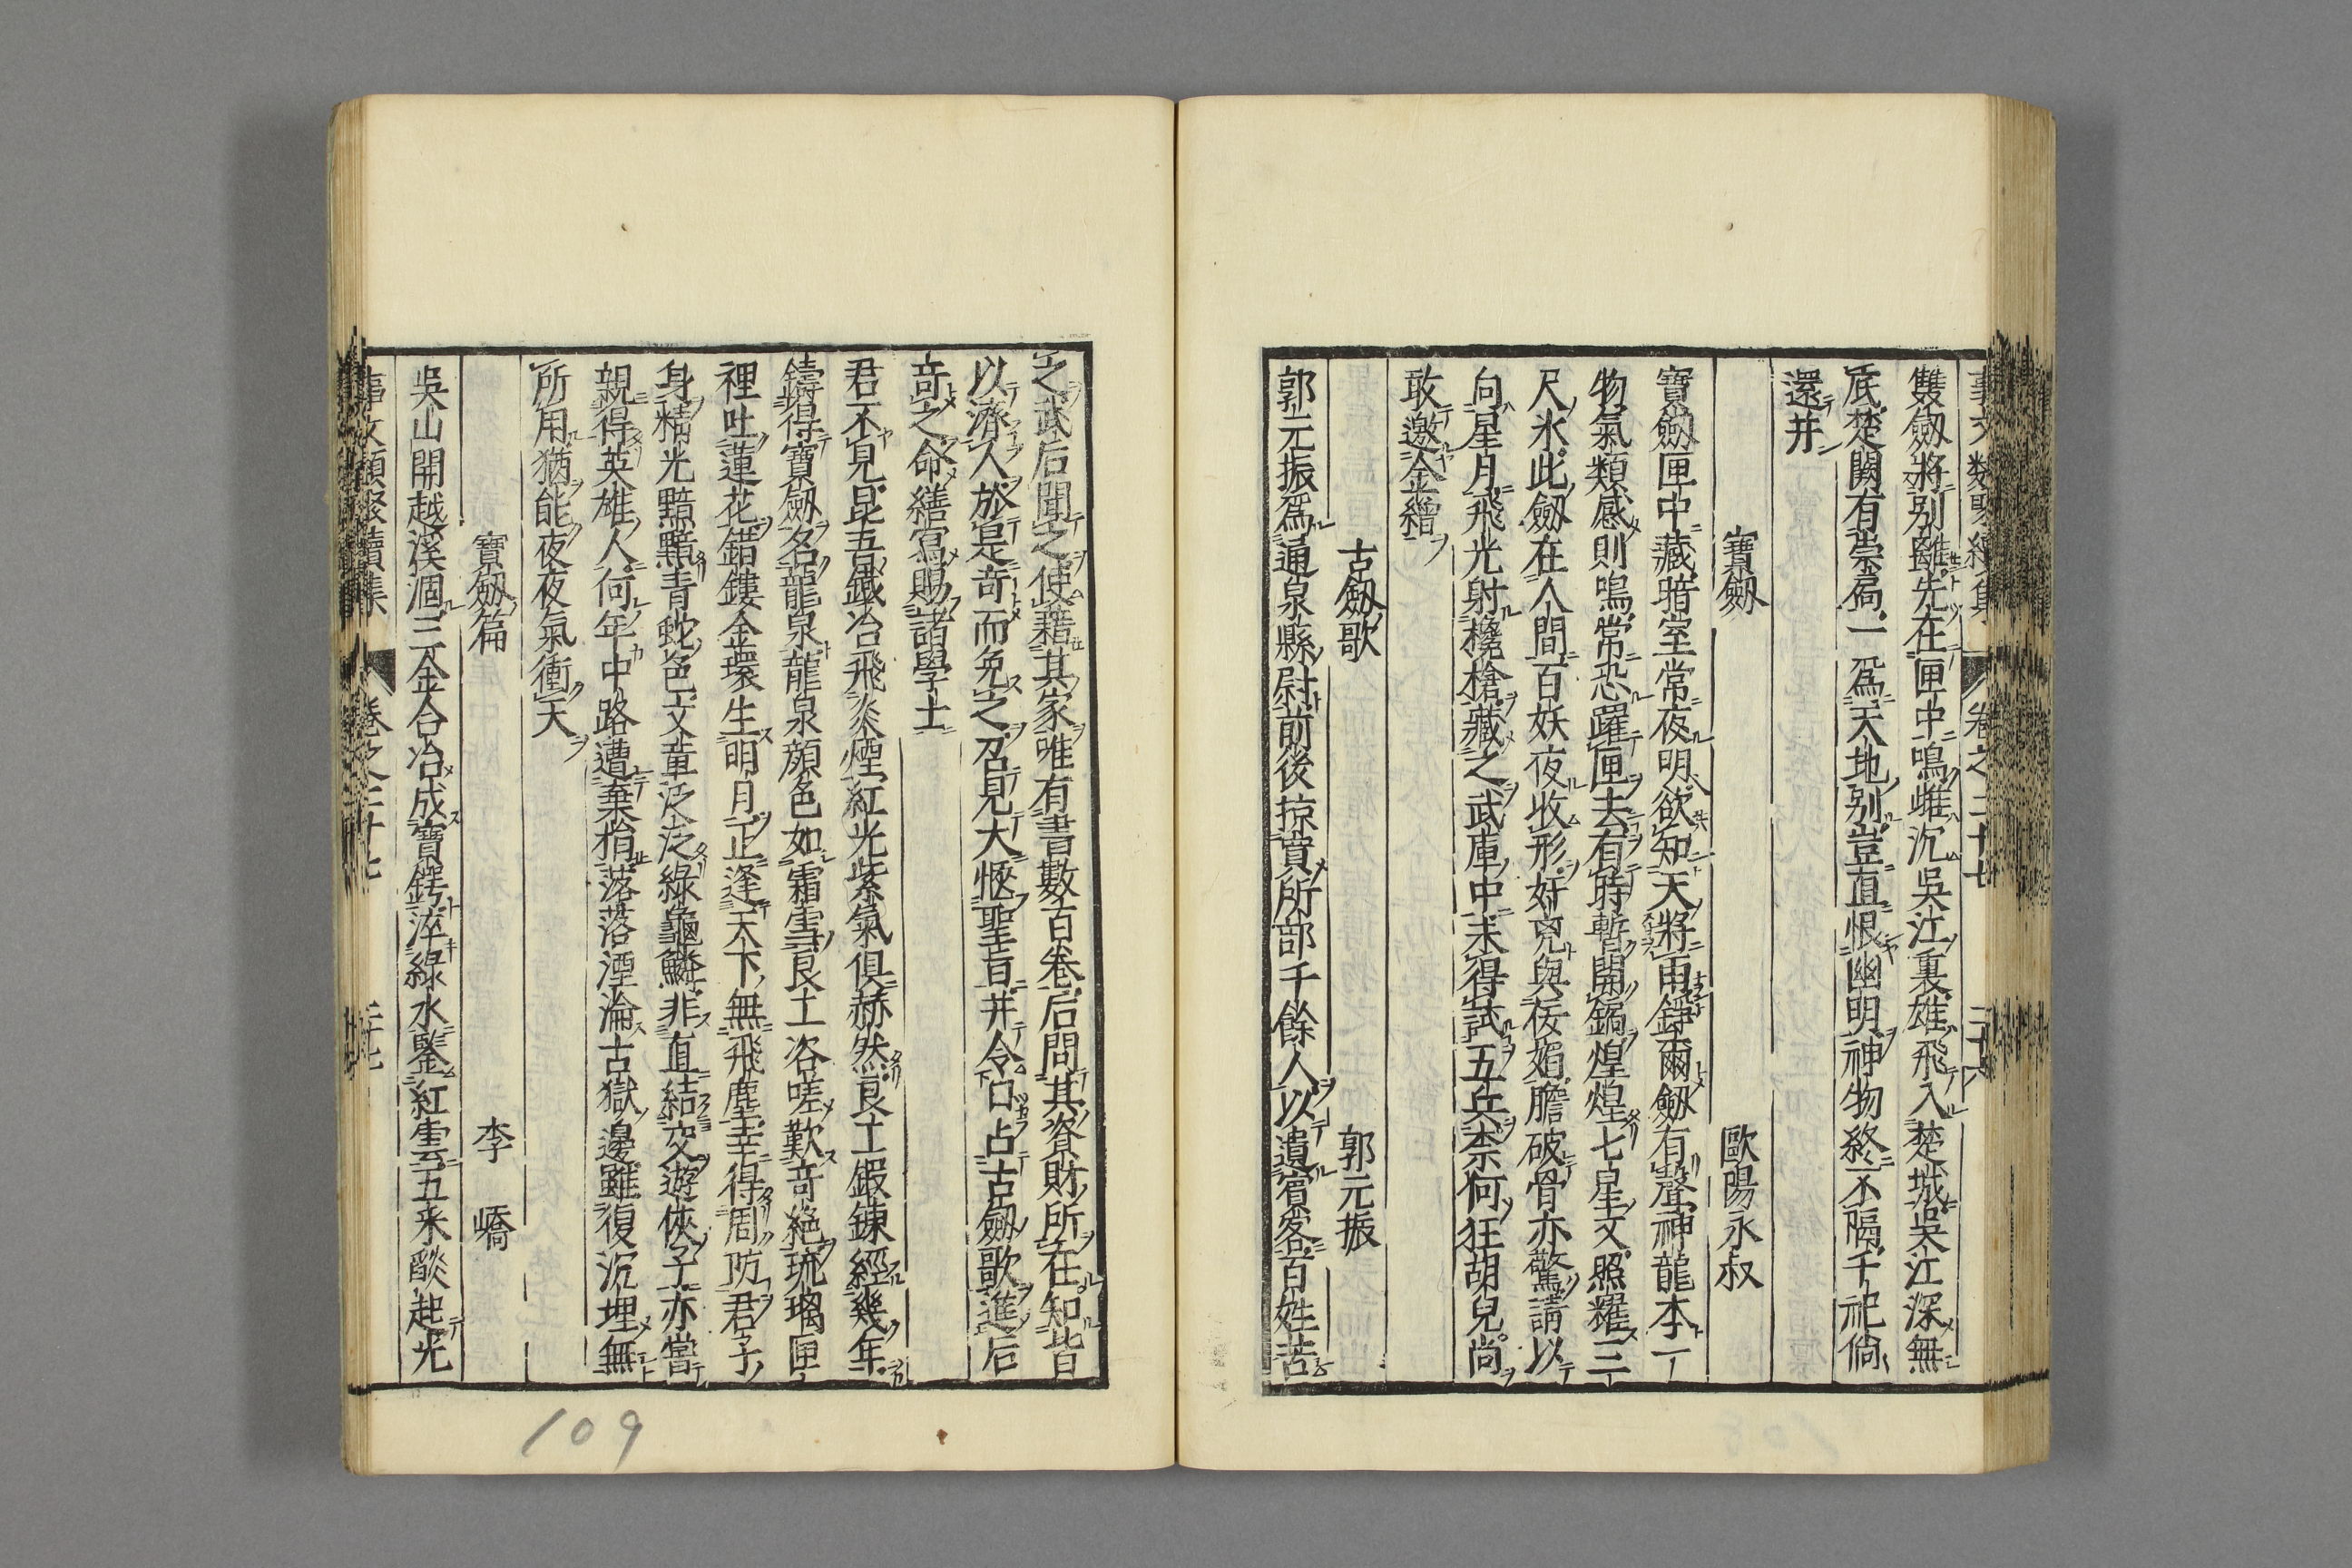 事文類聚續集 卷之二十七
雙劔將别離先在匣中鳴雌沉吳江裏雄飛入楚城吳江深無
底楚闕有崇扃一爲天地别豈直恨幽明神物終不隔千祀倘
還并
寶劔 歐陽永叔
寶劔匣中藏暗室常夜明欲知天將雨錚爾劔有聲神龍本一
物氣類感則鳴常恐躍匣去有時暫開鐍煌煌七星文照耀三
尺氷此劔在人間百妖夜收形奸兇與佞媚膽破骨亦驚請以
向星月飛光射攙槍藏之武庫中未得試五兵柰何狂胡兒尚
敢邀金繒
古劔歌 郭元振
郭元振爲通泉縣尉前後掠賣所部千餘人以遺賓客百姓苦
之武后聞之使藉其家唯有書數百卷后問其資財所在知皆
以濟人於是竒而免之召見大愜聖旨并令口占古劔歌進后
竒之命繕寫賜諸學士
君不見昆吾鐵冶飛炎煙紅光紫氣俱赫然良工鍛鍊經幾年
鑄得寶劔名龍泉龍泉顔色如霜雪良工咨嗟歎竒絶琉璃匣
裡吐蓮花錯鏤金環生明月正逢天下無飛塵幸得周防君子
身精光黯黯青蛇色文章泛泛綠龜鱗非直結交遊俠子亦當
親得英雄人何年中路遭棄捐落落湮淪古獄邊雖復沉埋無
所用猶能夜夜氣衝天
寶劔篇 李嶠
吳山開越溪涸三金合冶成寶鍔淬綠水鑒紅雲五来燄起光
事文類聚續集 卷之二十七